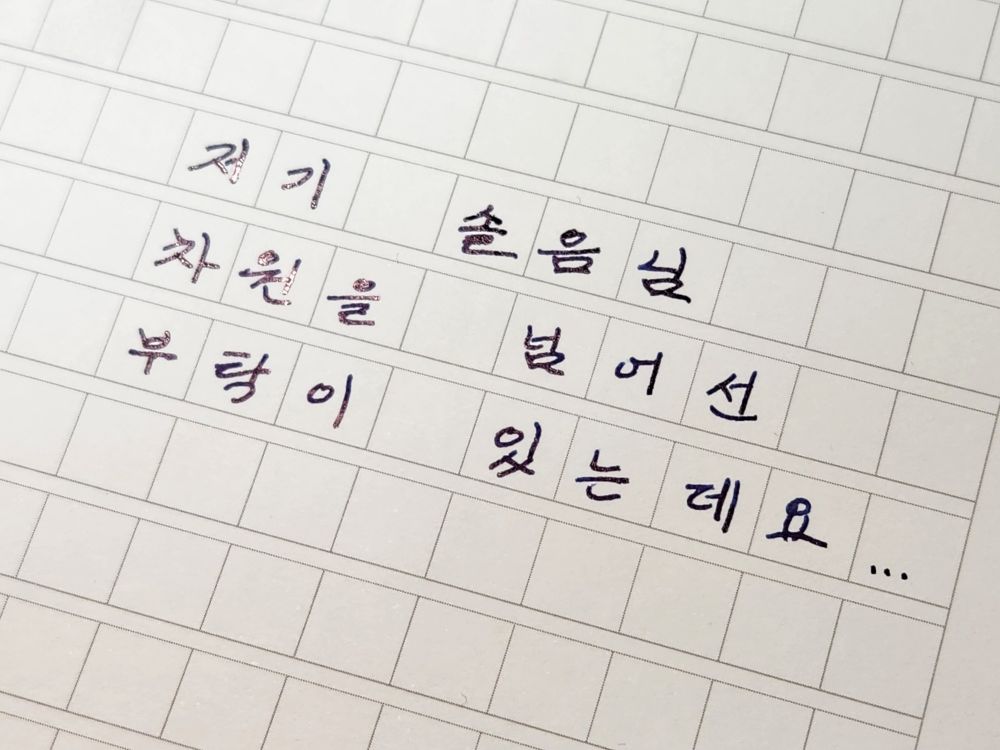 저기 솔음님
차원을 넘어선
부탁이 있는데요...